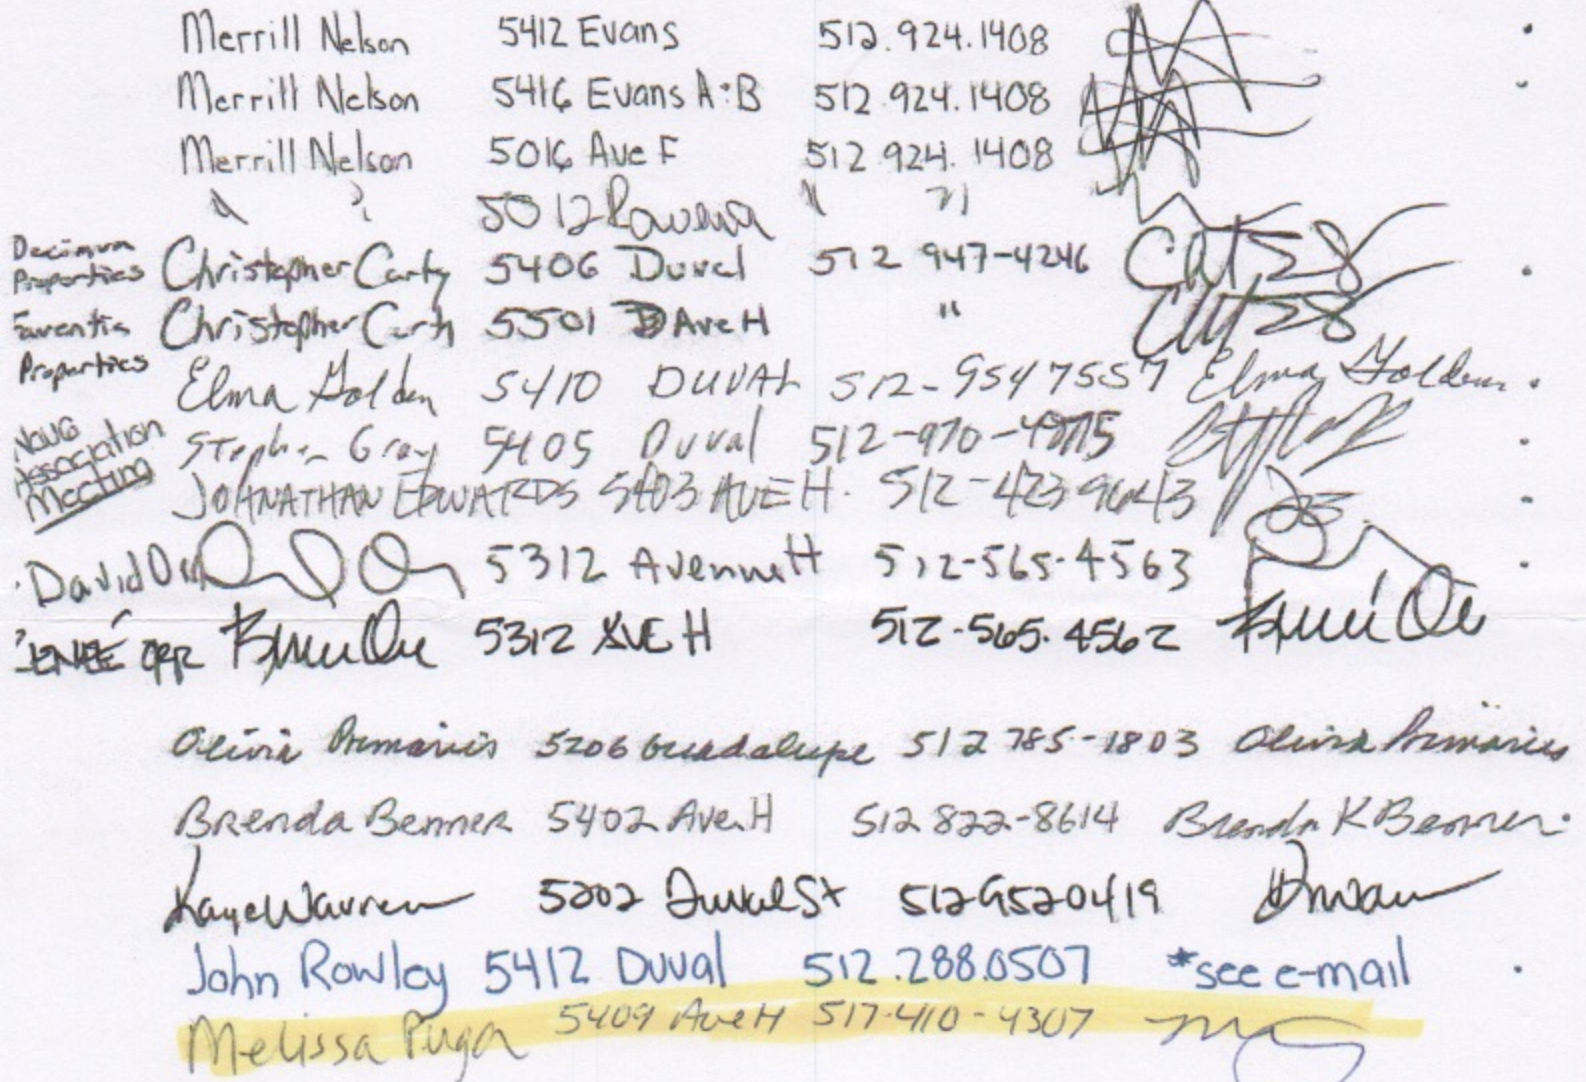 Merrill Nelson 5412 Evans 512.924.1408
Merrill Nelson 5416 Evans A:B 512.924.1408
Merrill Nelson 5016 Ave F 512 924. 1408
" " 5012 " "
Properties Christopher Carty 5406 Duval 512 947-4246
Christopher Carty 5501 Ave H "
Properties
Elma Golden 5410 DUVAL 512-954 7557 Elma Golden
Association Stephen Gray 5405 Duval 512-970-
Meeting JOHNATHAN EDWARDS 5403 AVE H. 512-423 9643
David Orr 5312 Avenue H 512-565-4563
ORR 5312 AVE H 512-565-4562
Olivia Primanis 5206 Guadalupe 512 785-1803 Olivia Primanis
Brenda Benner 5402 Ave. H 512 822-8614 Brenda K Benner
Kaye Warren 5202 Duval St 512 9520419
John Rowley 5412 Duval 512.288.0507 *see e-mail
Melissa Puga 5409 Ave H 517-410-4307